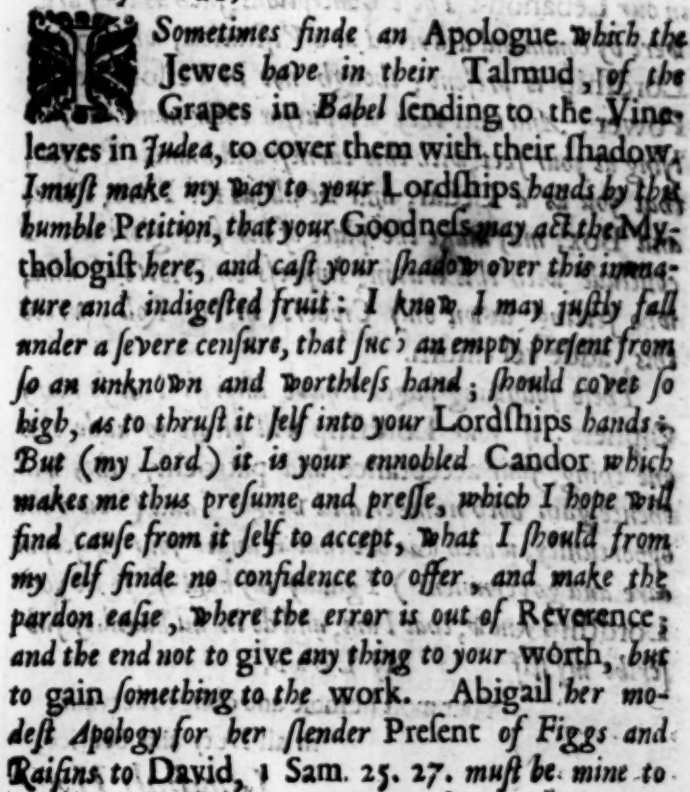 I Sometimes finde an Apologue which the
Jewes have in their Talmud, of the
Grapes in Babel ſending to the Vine-
leaves in Judea, to cover them with their ſhadow.
I muſt make my way to your Lordſhips hands by this
humble Petition, that your Goodneſs may act the My-
thologiſt here, and caſt your ſhadow over this imma-
ture and indigeſted fruit: I know I may juſtly fall
under a ſevere cenſure, that ſuch an empty preſent from
ſo an unknown and worthleſs hand; ſhould covet ſo
high, as to thruſt it ſelf into your Lordſhips hands:
But (my Lord) it is your ennobled Candor which
makes me thus preſume and preſſe, which I hope will
find cauſe from it ſelf to accept, what I ſhould from
my ſelf finde no confidence to offer, and make the
pardon eaſie, where the error is out of Reverence;
and the end not to give any thing to your worth, but
to gain ſomething to the work. Abigail her mo-
deſt Apology for her ſlender Preſent of Figgs and
Raiſins to David, 1 Sam. 25. 27. muſt be mine to